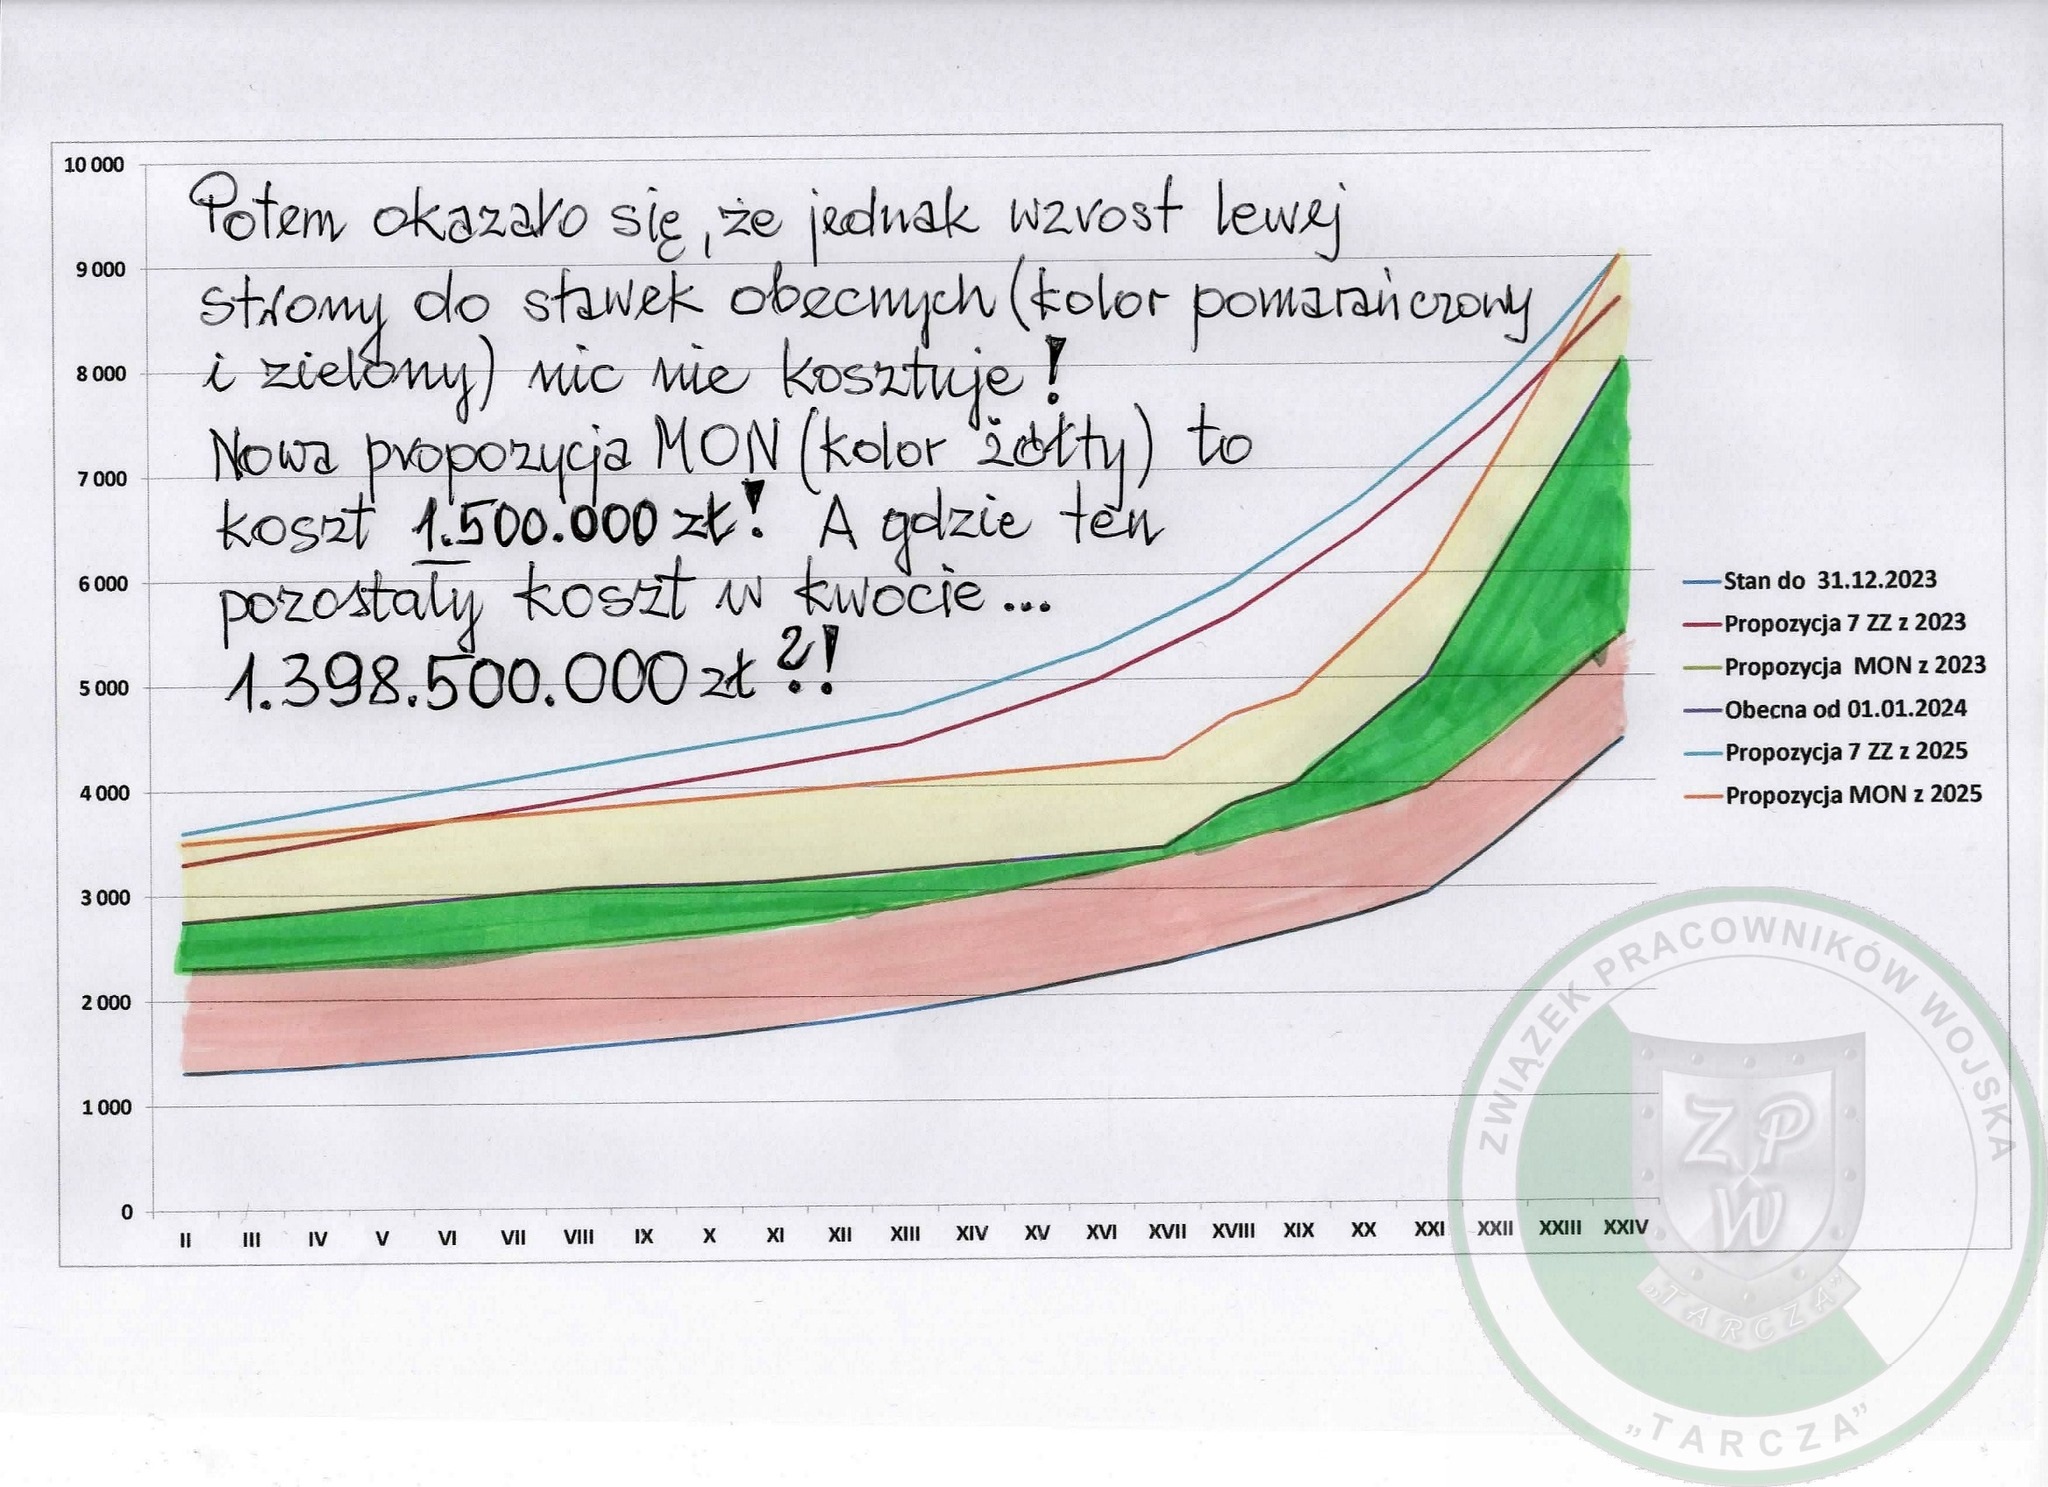 Potem okazało się, że jednak wzrost lewej
strony do stawek obecnych (kolor pomarańczowy
i zielony) nic nie kosztuje!
Nowa propozycja MON (kolor żółty) to
koszt 1.500.000 zł! A gdzie ten
pozostały koszt w kwocie...
1.398.500.000 zł?!
10 000
9 000
8 000
7 000
6 000
5 000
4 000
3 000
2 000
1 000
0
II III IV V VI VII VIII IX X XI XII XIII XIV XV XVI XVII XVIII XIX XX XXI XXII XXIII XXIV
Stan do 31.12.2023
Propozycja 7 ZZ z 2023
Propozycja MON z 2023
Obecna od 01.01.2024
Propozycja 7 ZZ z 2025
Propozycja MON z 2025
ZWIĄZEK PRACOWNIKÓW WOJSKA
Z P
W
„TARCZA”
„TARCZA”